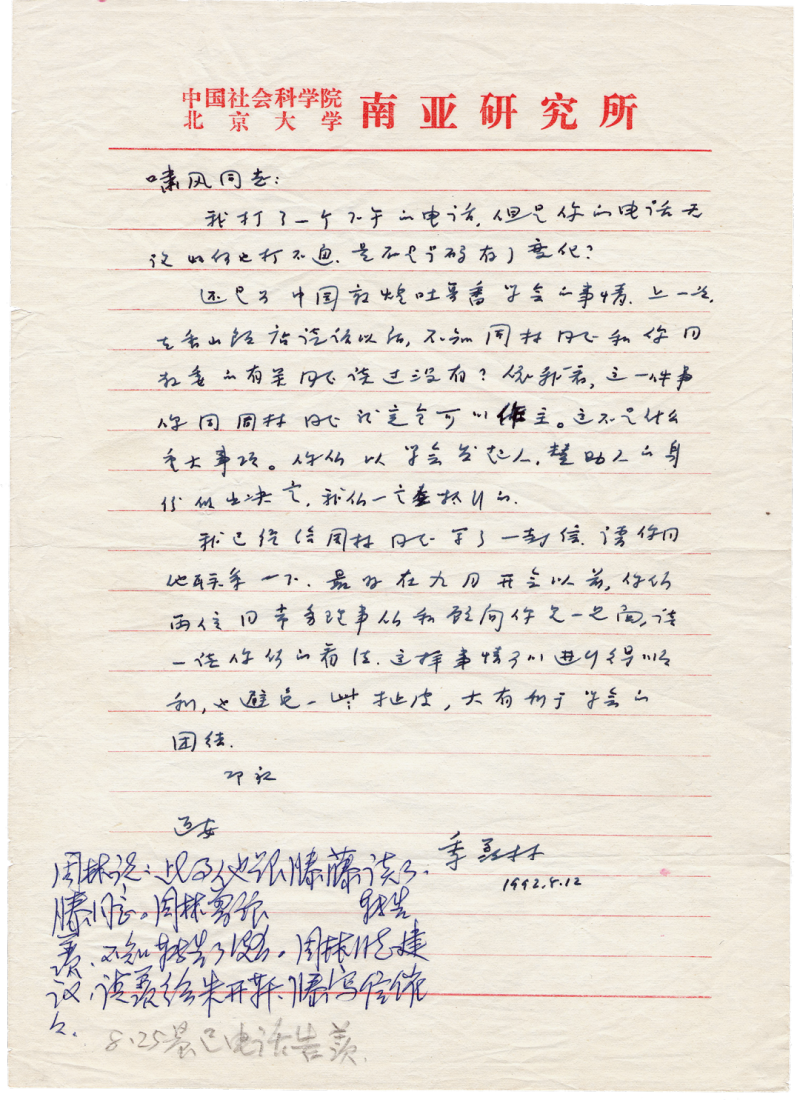 中国社会科学院
北京大学 南亚研究所
啸风同志:
我打了一个下午的电话,但是你的电话无
论如何也打不通,是不是号码有了变化?
还是为中国敦煌吐鲁番学会的事情,上一次
在香山饭店谈话以后,不知周林同志和你同
教委的有关同志谈过没有?依我看,这一件事
你同周林同志就完全可以作主。这不是什么
重大事项。你们以学会发起人,赞助人的身
份做出决定,我们一定执行的。
我已经给周林同志写了一封信,请你同
他联系一下,最好在九月开会以前,你们
两位同常务理事们和顾问们见一见面,谈
一谈你们的看法,这样事情可以进行得顺
利,也避免一些扯皮,大有利于学会的
团结.
即祝
近安
季羡林
1992.8.12
周林说:此事他跟滕藤谈了.
滕同意。周林曾 转告
羡,不知转告了没有。周林同志建
议,请羡给朱开轩、滕写信催
催.
8.25晨已电话告羡.